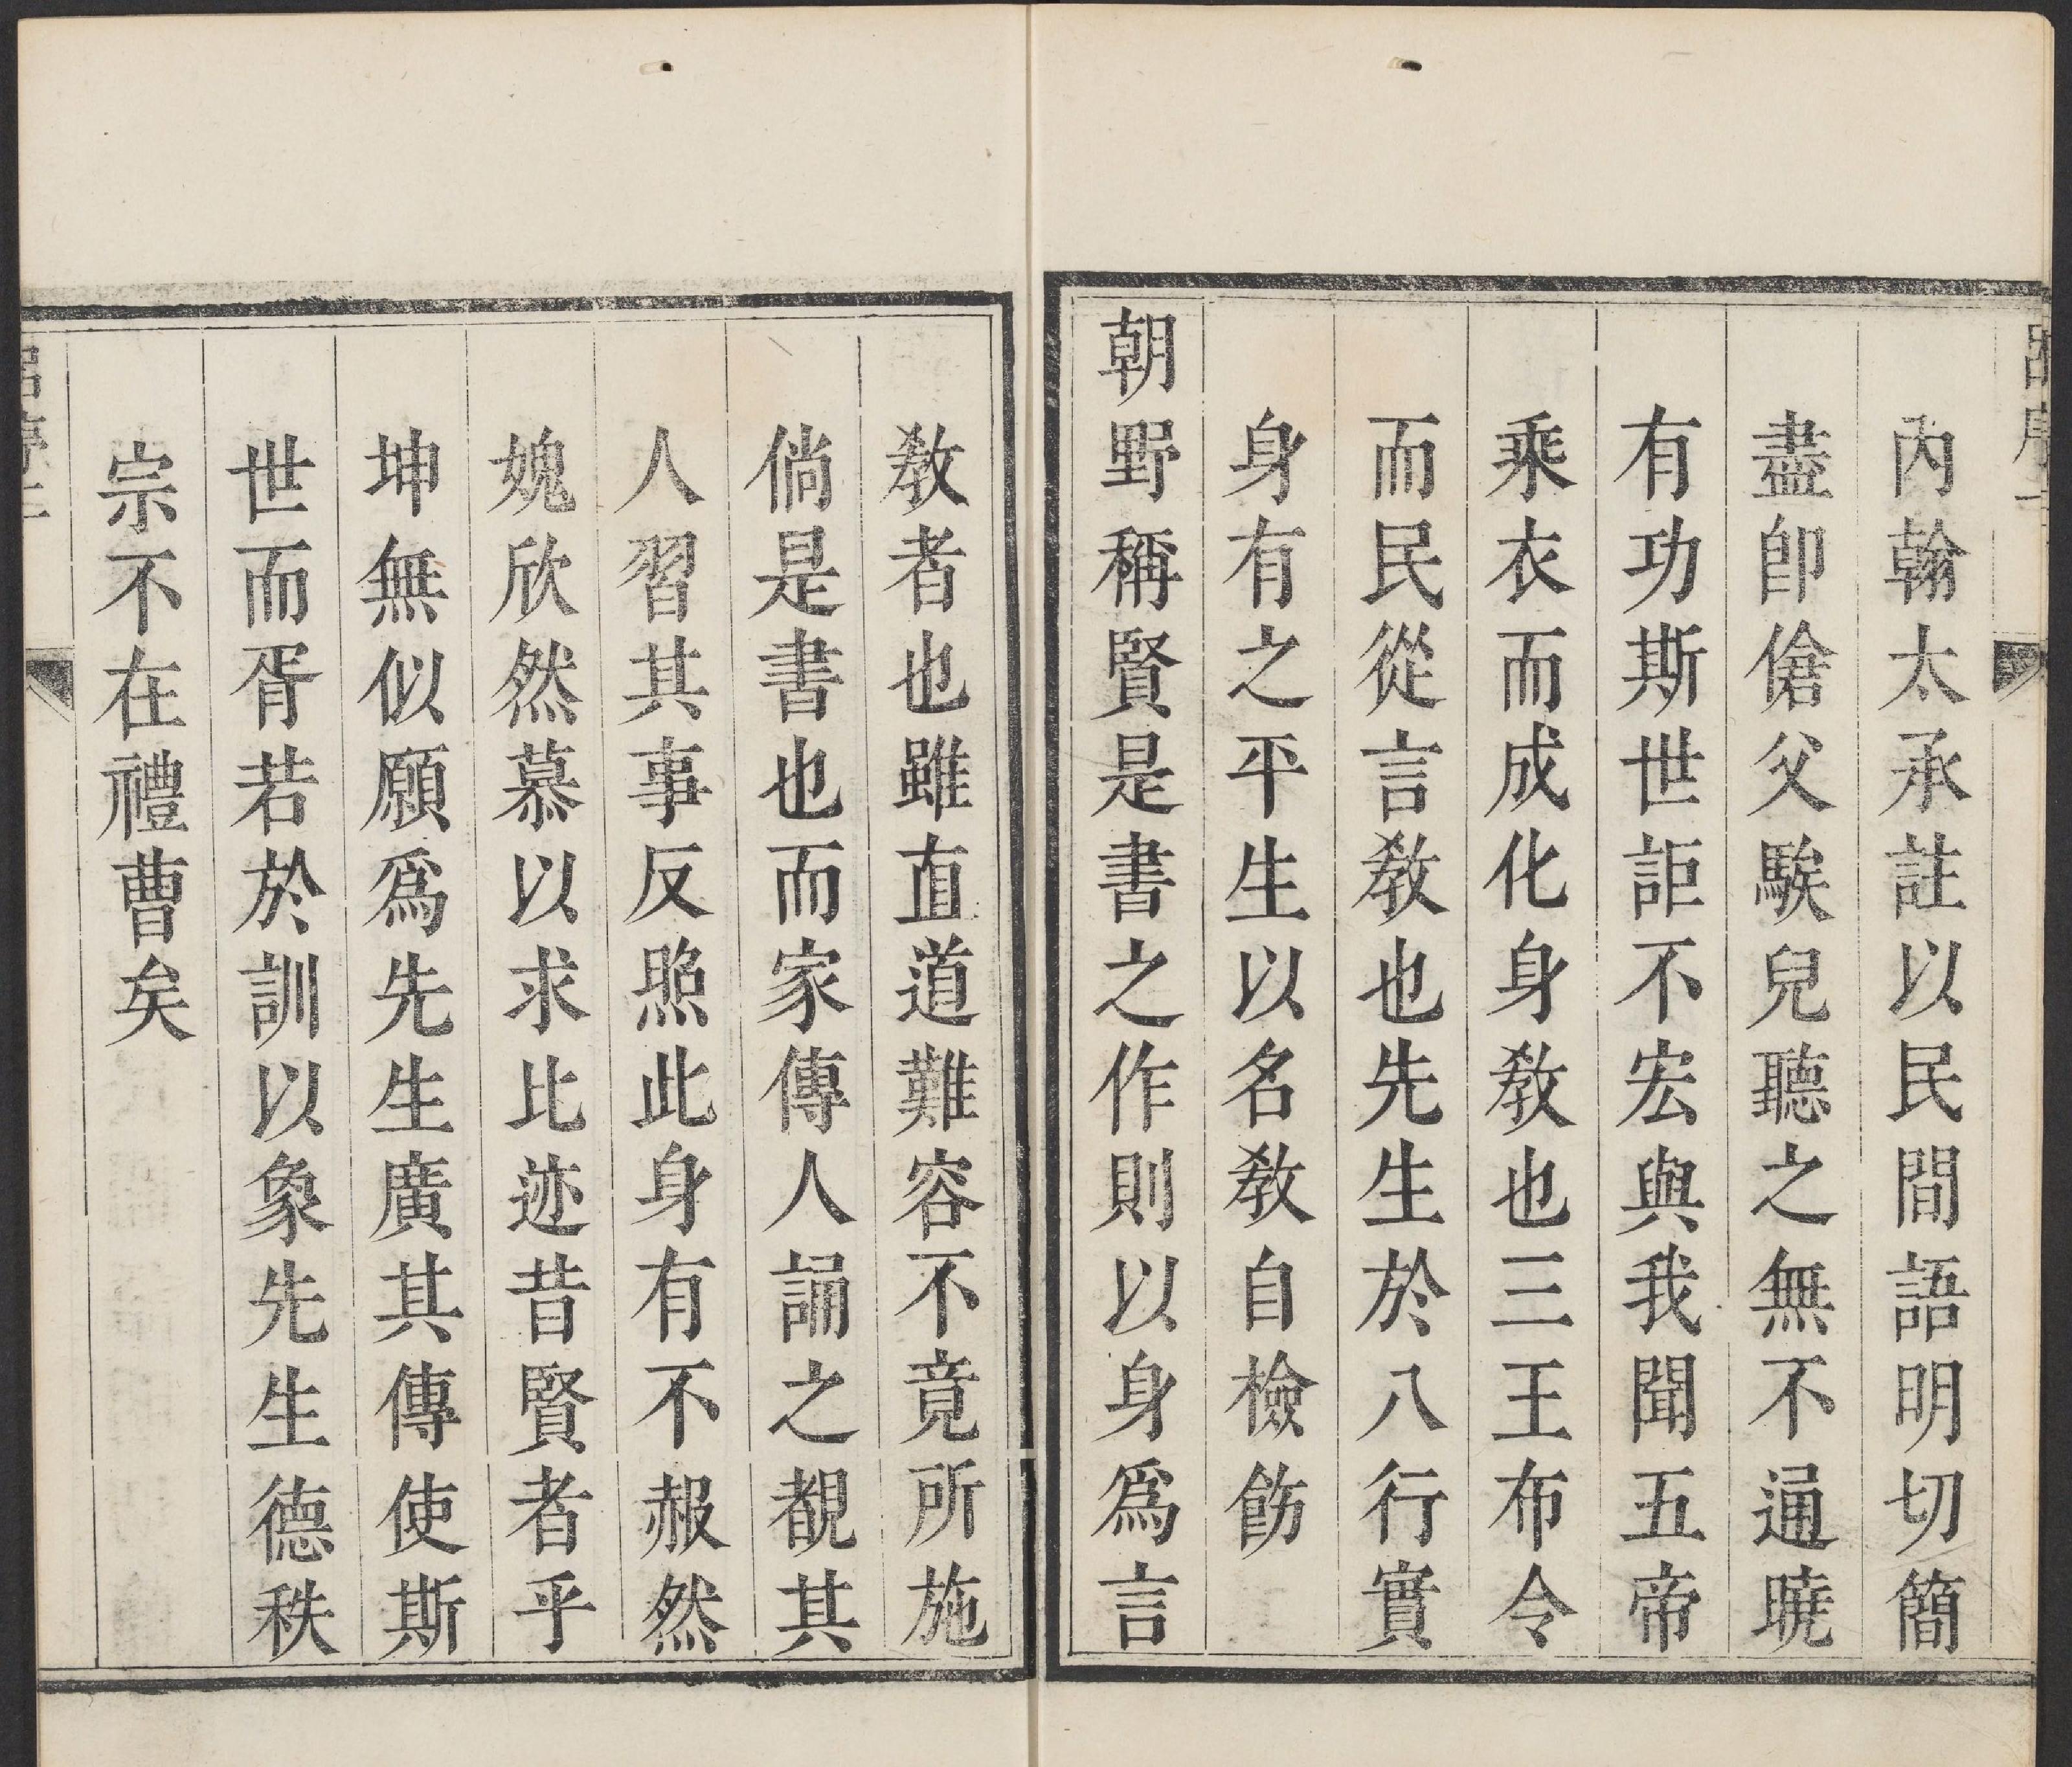 內翰太承註以民間語明切簡
盡卽傖父騃兒聽之無不通曉
有功斯世詎不宏與我聞五帝
乘衣而成化身敎也三王布令
而民從言敎也先生於八行實
身有之平生以名敎自檢飭
朝野稱賢是書之作則以身爲言
敎者也雖直道難容不竟所施
倘是書也而家傳人誦之覩其
人習其事反照此身有不赧然
媿欣然慕以求比迹昔賢者乎
坤無似願爲先生廣其傳使斯
世而胥若於訓以象先生德秩
宗不在禮曹矣